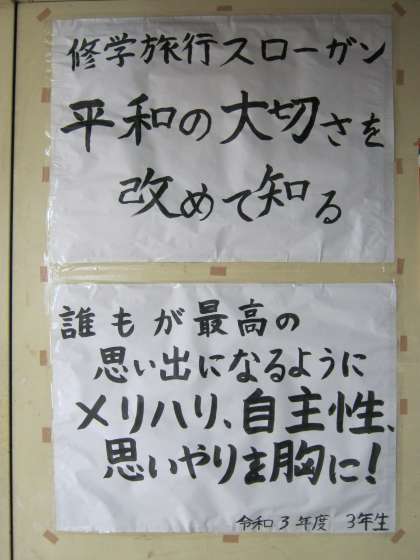 修学旅行スローガン
平和の大切さを
改めて知る
誰もが最高の
思い出になるように
メリハリ、自主性、
思いやりを胸に!
令和3年度 3年生